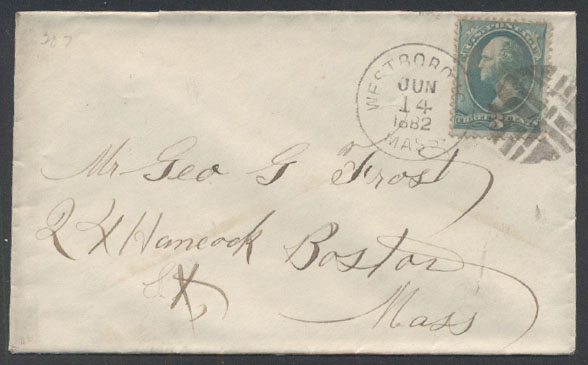 307
WESTBORO
JUN
14
1882
MASS
U.S. POSTAGE
THREE 3 CENTS
Mr Geo G Frost
24 Hancock Boston
St
Mass